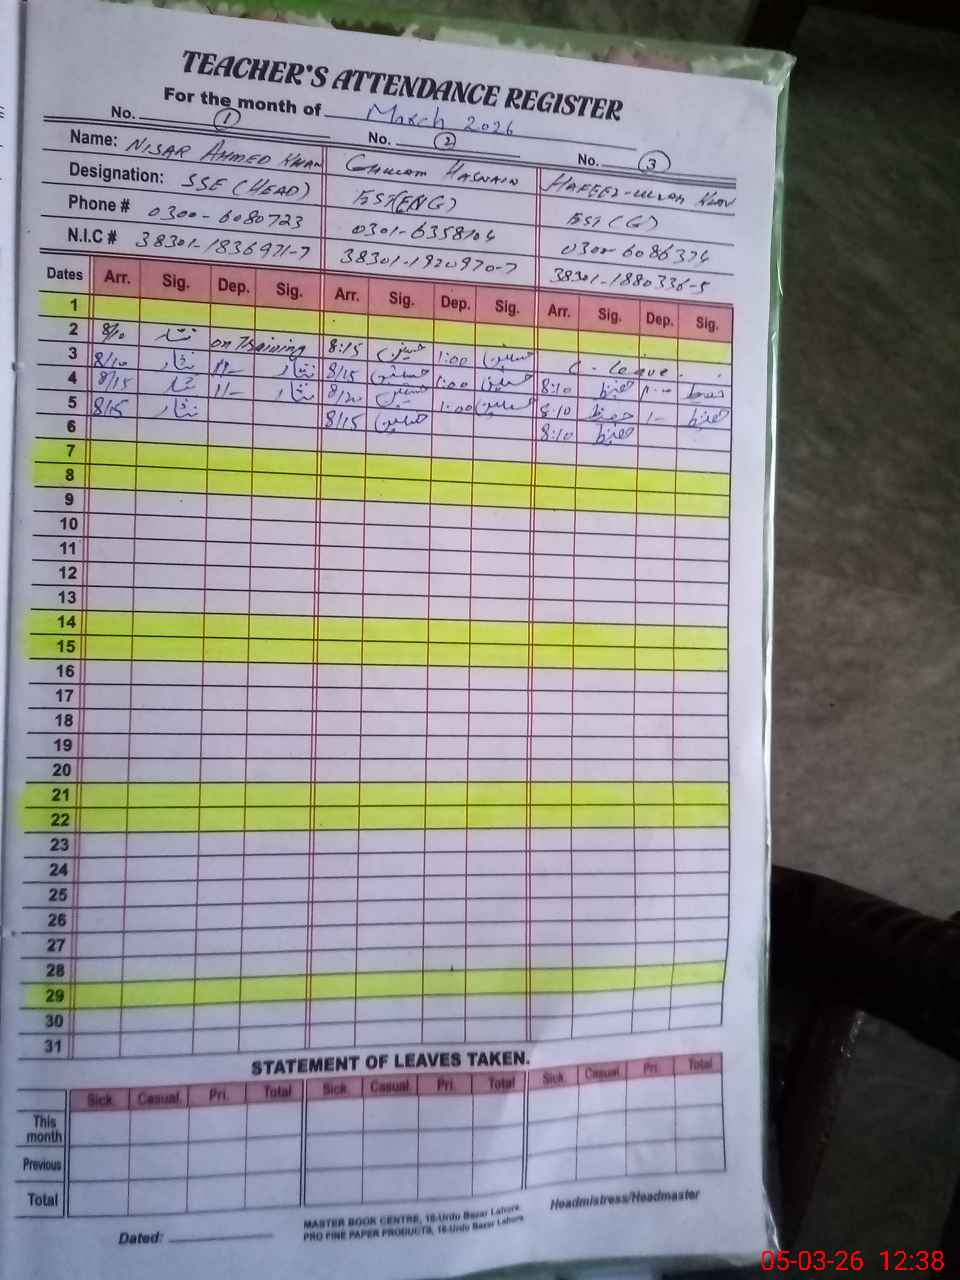 TEACHER'S ATTENDANCE REGISTER
For the month of March 2026
No. 1 No. 2 No. 3
Name: NISAR AHMED KHAN GHULAM HASNAIN HAFEEZ-ULLAH KHAN
Designation: SSE (HEAD) EST(ENG) EST (G)
Phone # 0300-6080723 0301-6358104 0300-6086374
N.I.C # 38301-1836971-7 38301-1920970-7 38301-1880336-5
Dates Arr. Sig. Dep. Sig. Arr. Sig. Dep. Sig. Arr. Sig. Dep. Sig.
1
2 8/10 نثار on Training 8:15 حسنین 1:00 حسنین C. leave
3 8/10 نثار 11- نثار 8/15 حسنین 1:00 حسنین 8:10 حفیظ حفیظ
4 8/15 نثار 11- نثار 8/20 حسنین 1:00 حسنین 8:10 حفیظ 1- حفیظ
5 8/15 نثار 8/15 حسنین 8:10 حفیظ
6
7
8
9
10
11
12
13
14
15
16
17
18
19
20
21
22
23
24
25
26
27
28
29
30
31
STATEMENT OF LEAVES TAKEN.
Sick. Casual. Pri. Total Sick. Casual. Pri. Total Sick. Casual. Pri. Total
This month
Previous
Total
Headmistress/Headmaster
Dated:
MASTER BOOK CENTRE, 16-Urdu Bazar Lahore.
PRO FINE PAPER PRODUCTS, 16-Urdu Bazar Lahore.
05-03-26 12:38